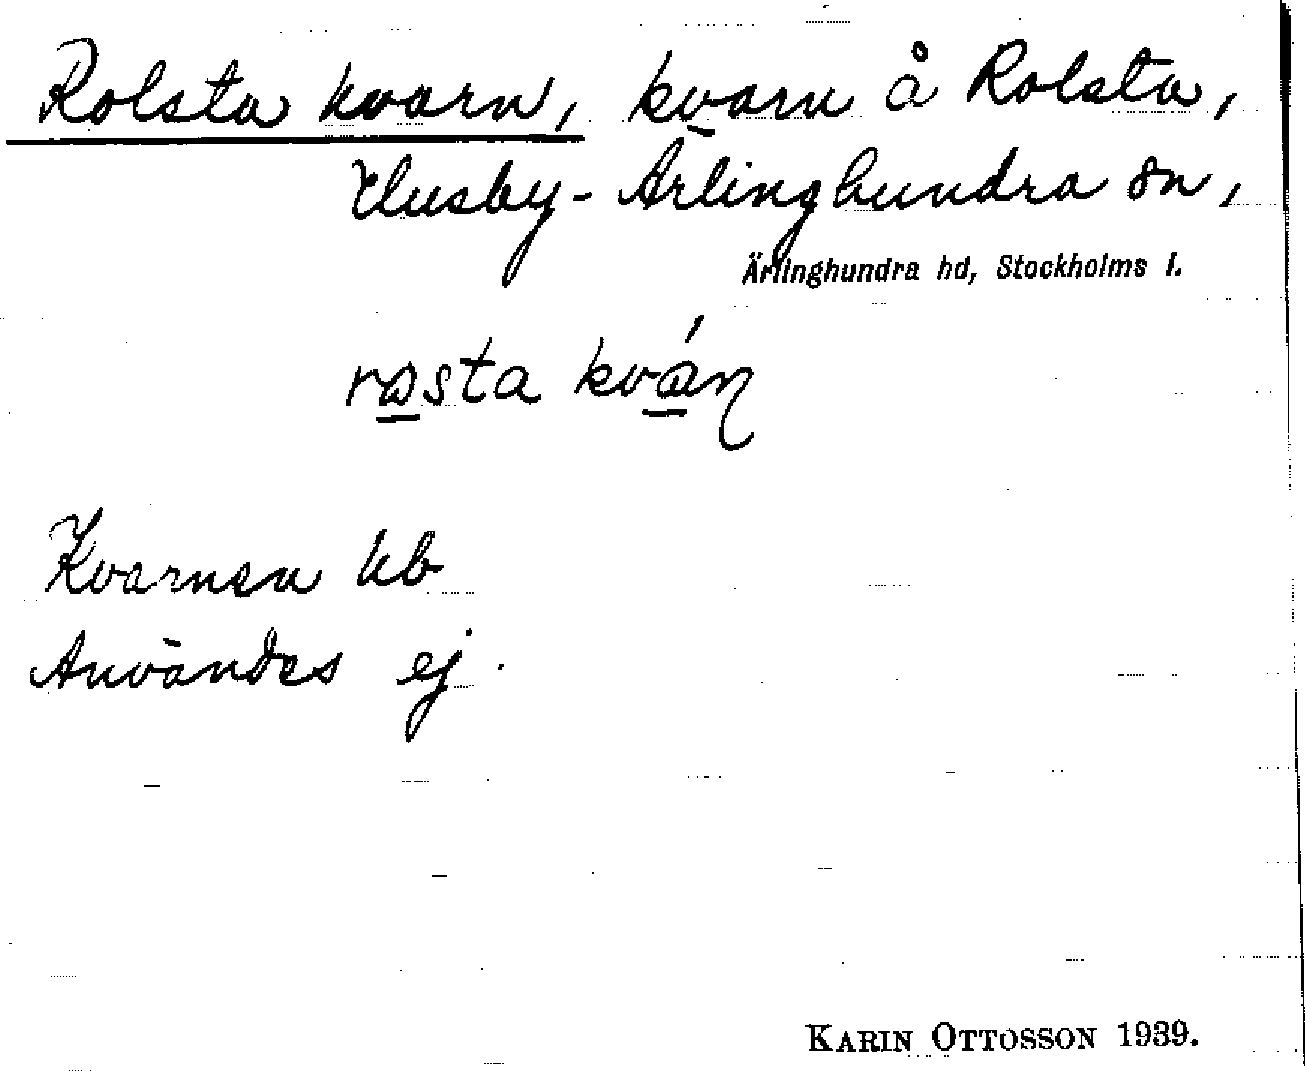 Rolsta kvarn, kvarn å Rolsta,
Husby-Ärlinghundra sn,
Ärlinghundra hd, Stockholms l.
rasta kváη
Kvarnen kb
Användes ej.
KARIN OTTOSSON 1939.